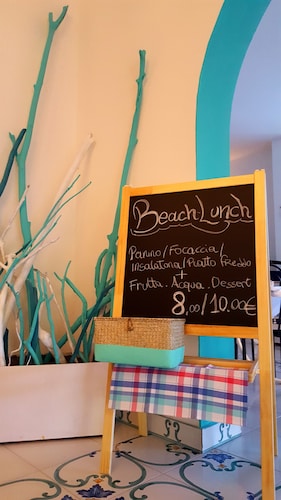 Beach Lunch
Panino/Focaccia/
Insalatona/Piatto Freddo
+
Frutta. Acqua. Dessert
8,00/10.00€